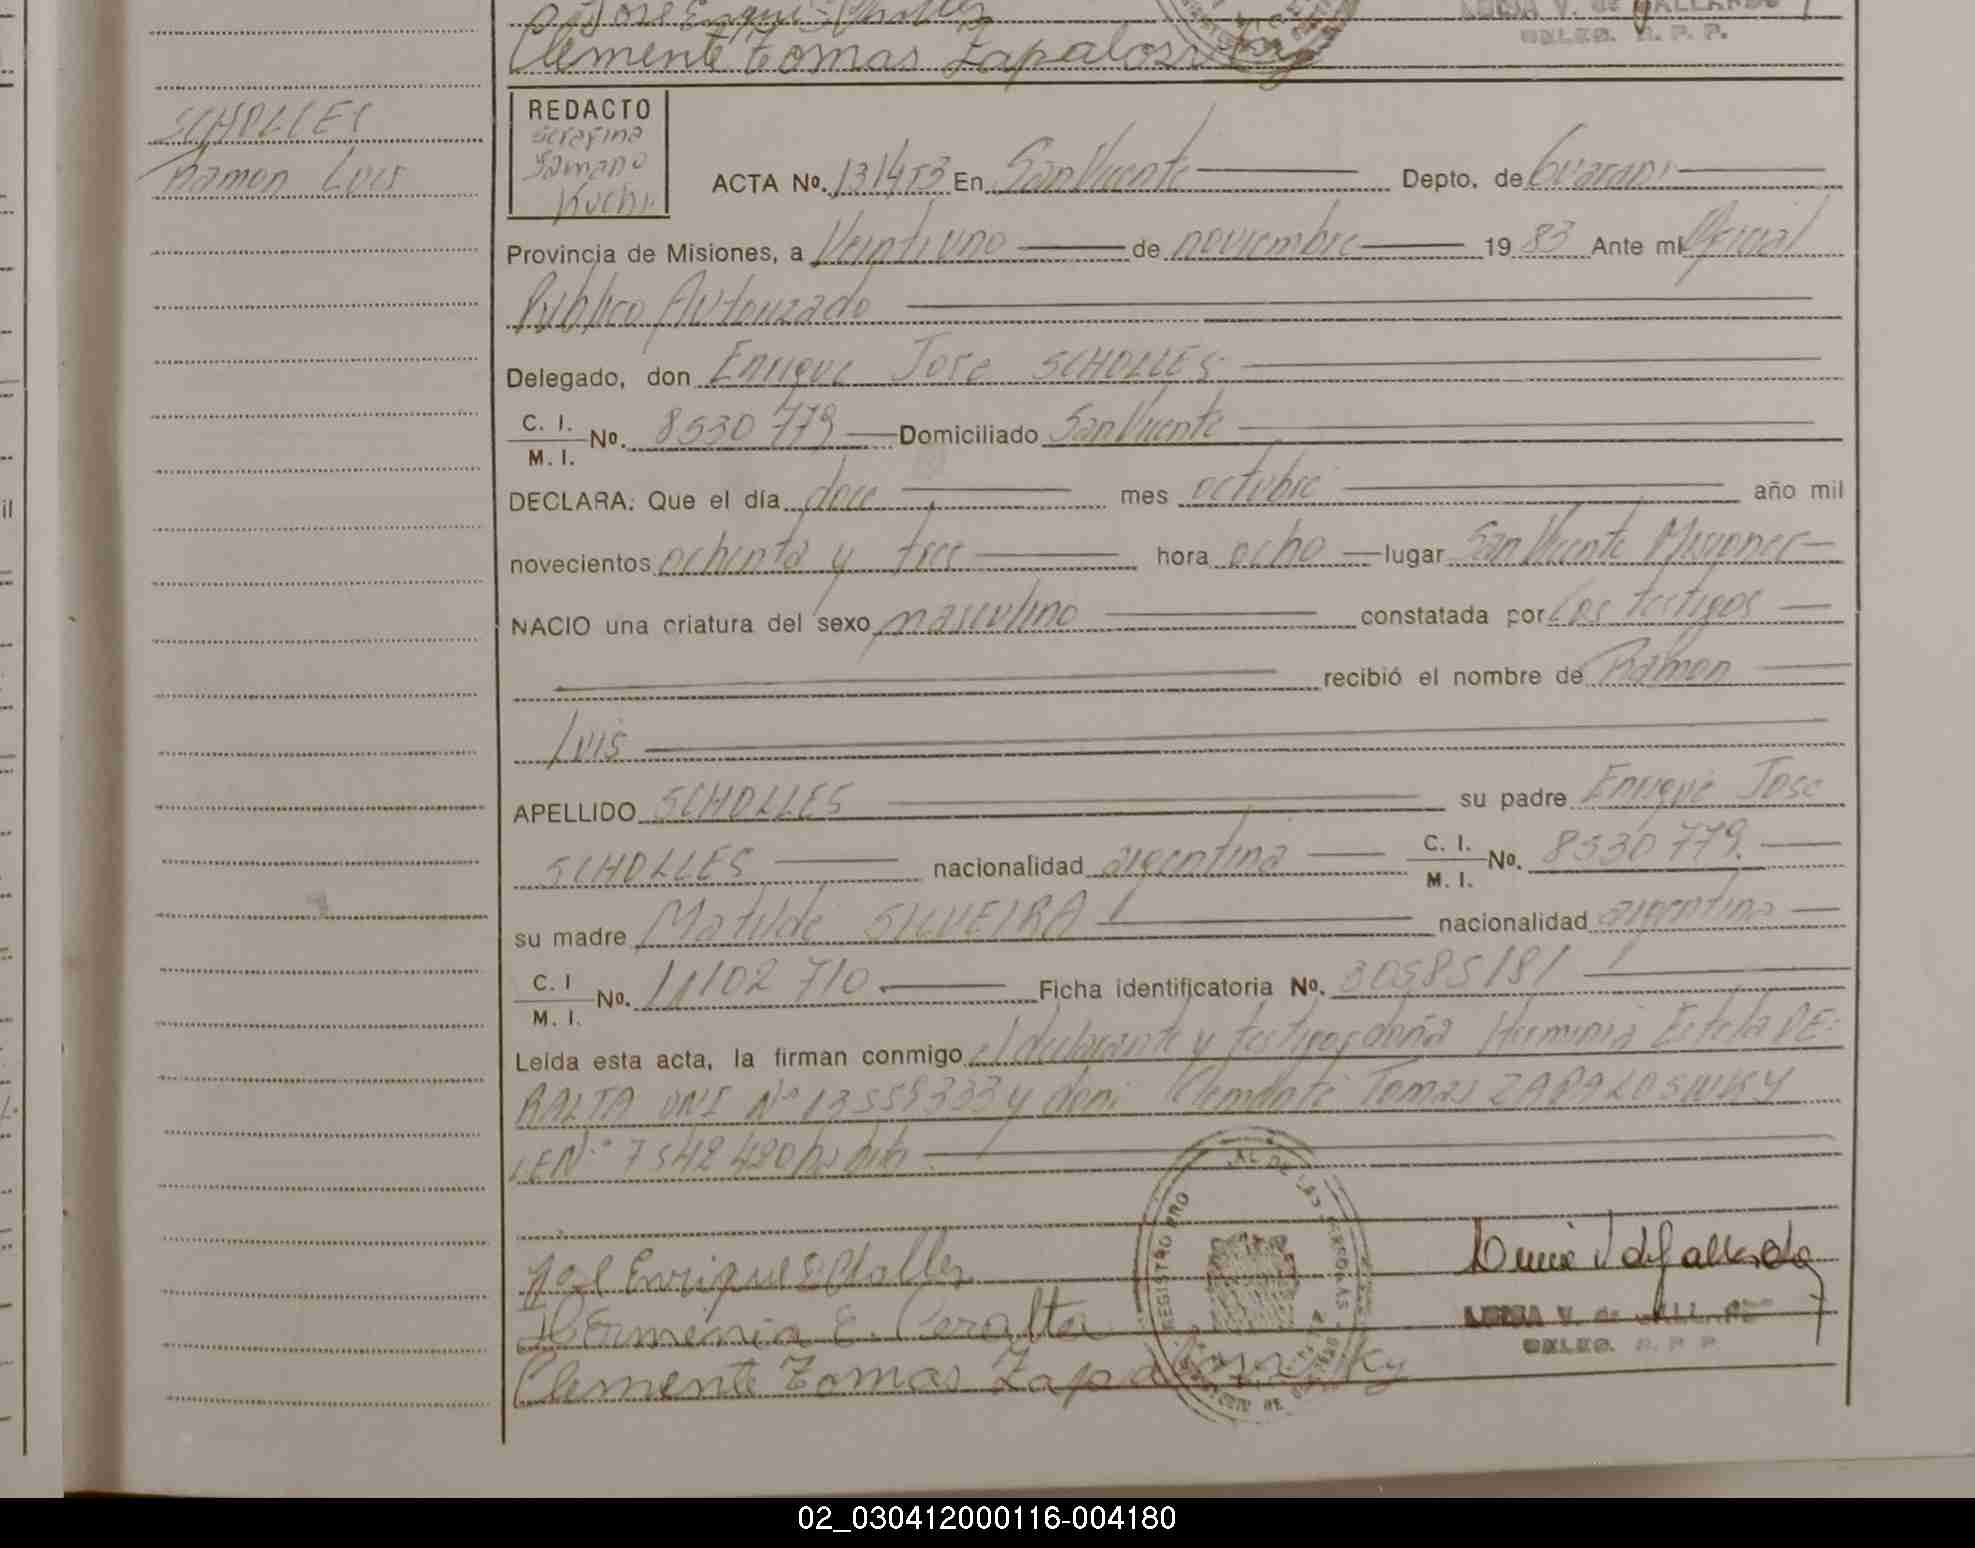 José Enrique Scholles
Clemente Tomas Zapalowsky
LUCIA V. de GALLARDO
DELEG. R. P. P.
SCHOLLES
Ramon Luis
REDACTO
Serafina
Samano
Kuchi
ACTA No. 131453 En San Vicente Depto. de Guarani
Provincia de Misiones, a Veintiuno de noviembre 19 83 Ante mí Oficial
Público Autorizado
Delegado, don Enrique Jose SCHOLLES
C. I.
M. I. No. 8530 779 Domiciliado San Vicente
DECLARA: Que el día doce mes octubre año mil
novecientos ochenta y tres hora ocho lugar San Vicente Misiones
NACIO una criatura del sexo masculino constatada por Los testigos
recibió el nombre de Ramon
Luis
APELLIDO SCHOLLES su padre Enrique Jose
SCHOLLES nacionalidad argentina C. I.
M. I. No. 8530 779.
su madre Matilde SILVEIRA nacionalidad argentina
C. I
M. I. No. 11102 710 Ficha identificatoria No. 30585181
Leída esta acta, la firman conmigo el declarante y testigos doña Herminia Estela PE-
RALTA DNI Nº 13559333 y don: Clemente Tomas ZAPALOSWKY
LE Nº 7542420
José Enrique Scholles
Herminia E. Peralta
Clemente Tomas Zapalowsky
REGISTRO PRO AL DE LAS PERSONAS
Lucia V de Gallardo
LUCIA V. de GALLARDO
DELEG. R. P. P.
02_030412000116-004180